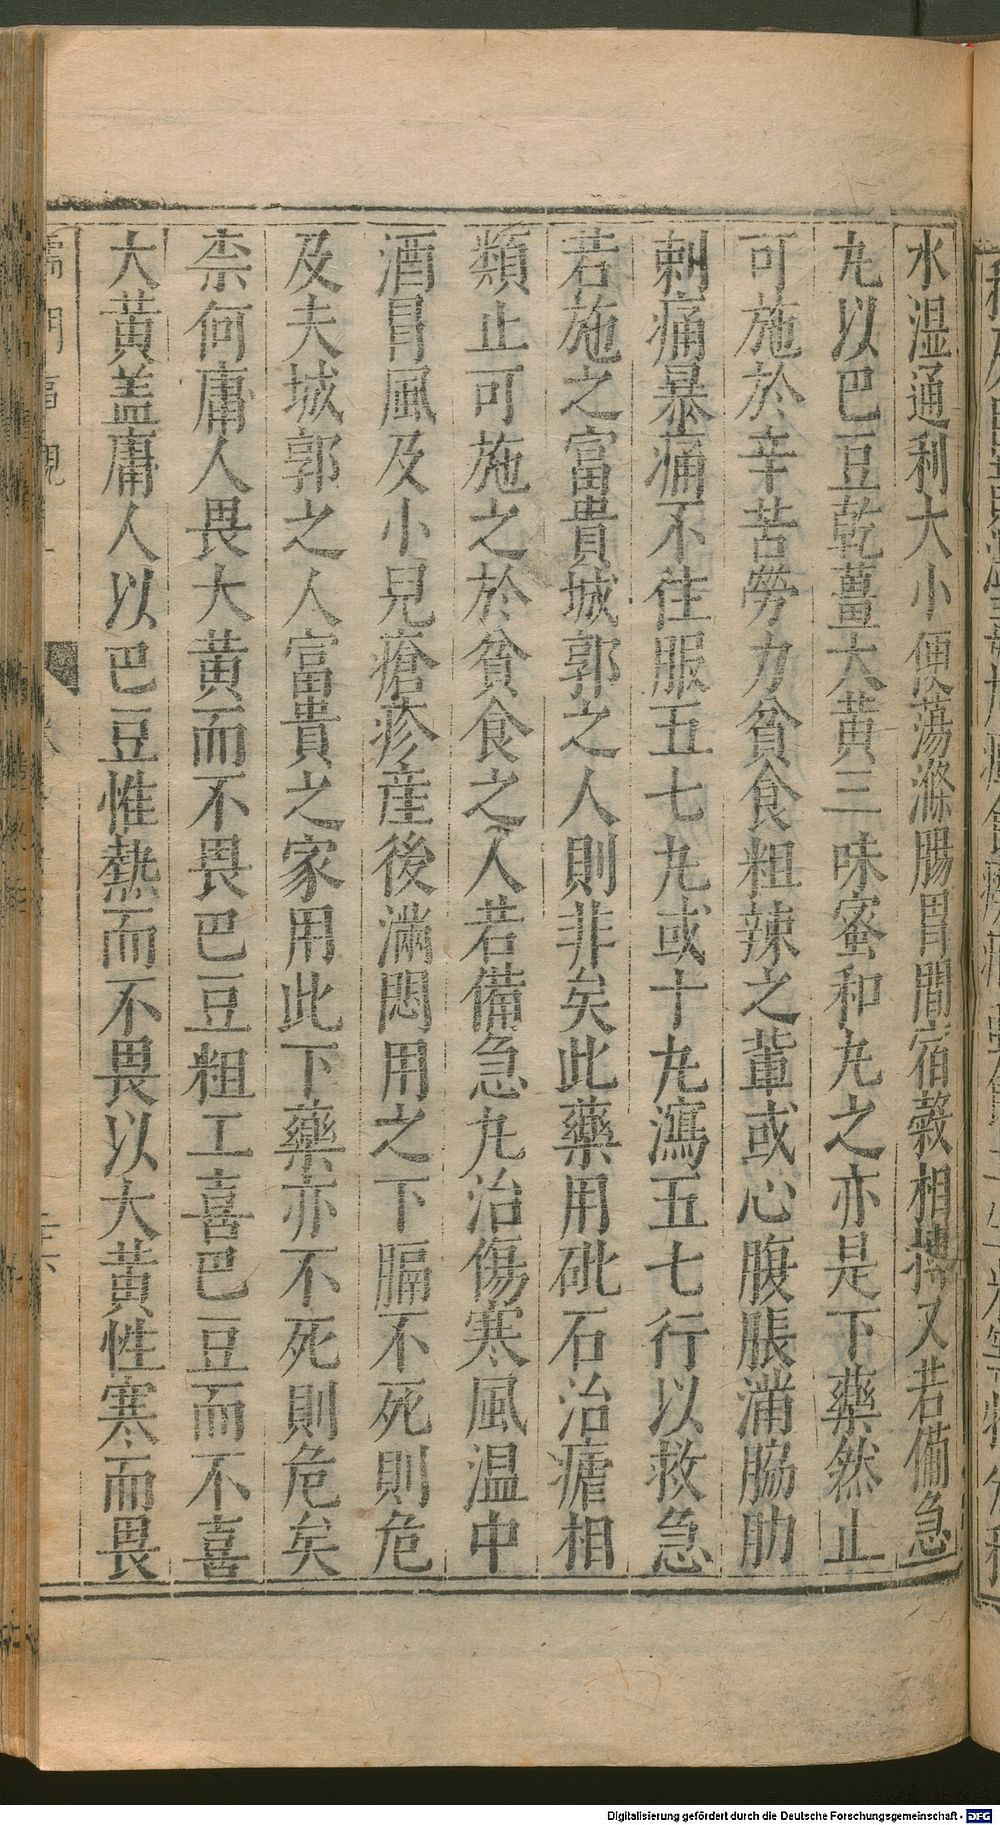 水湿通利大小便蕩滌腸胃間宿穀相搏又若備急
丸以巴豆乾薑大黃三味蜜和丸之亦是下藥然止
可施於辛苦勞力貧食粗辣之輩或心腹脹滿脇肋
刺痛暴痛不住服五七丸或十丸瀉五七行以救急
若施之富貴城郭之人則非矣此藥用砒石治瘧相
類止可施之於貧食之人若備急丸治傷寒風温中
酒冐風及小兒瘡疹産後滿悶用之下膈不死則危
及夫城郭之人富貴之家用此下藥亦不死則危矣
柰何庸人畏大黃而不畏巴豆粗工喜巴豆而不喜
大黃盖庸人以巴豆性熱而不畏以大黃性寒而畏
Digitalisierung gefördert durch die Deutsche Forschungsgemeinschaft - DFG